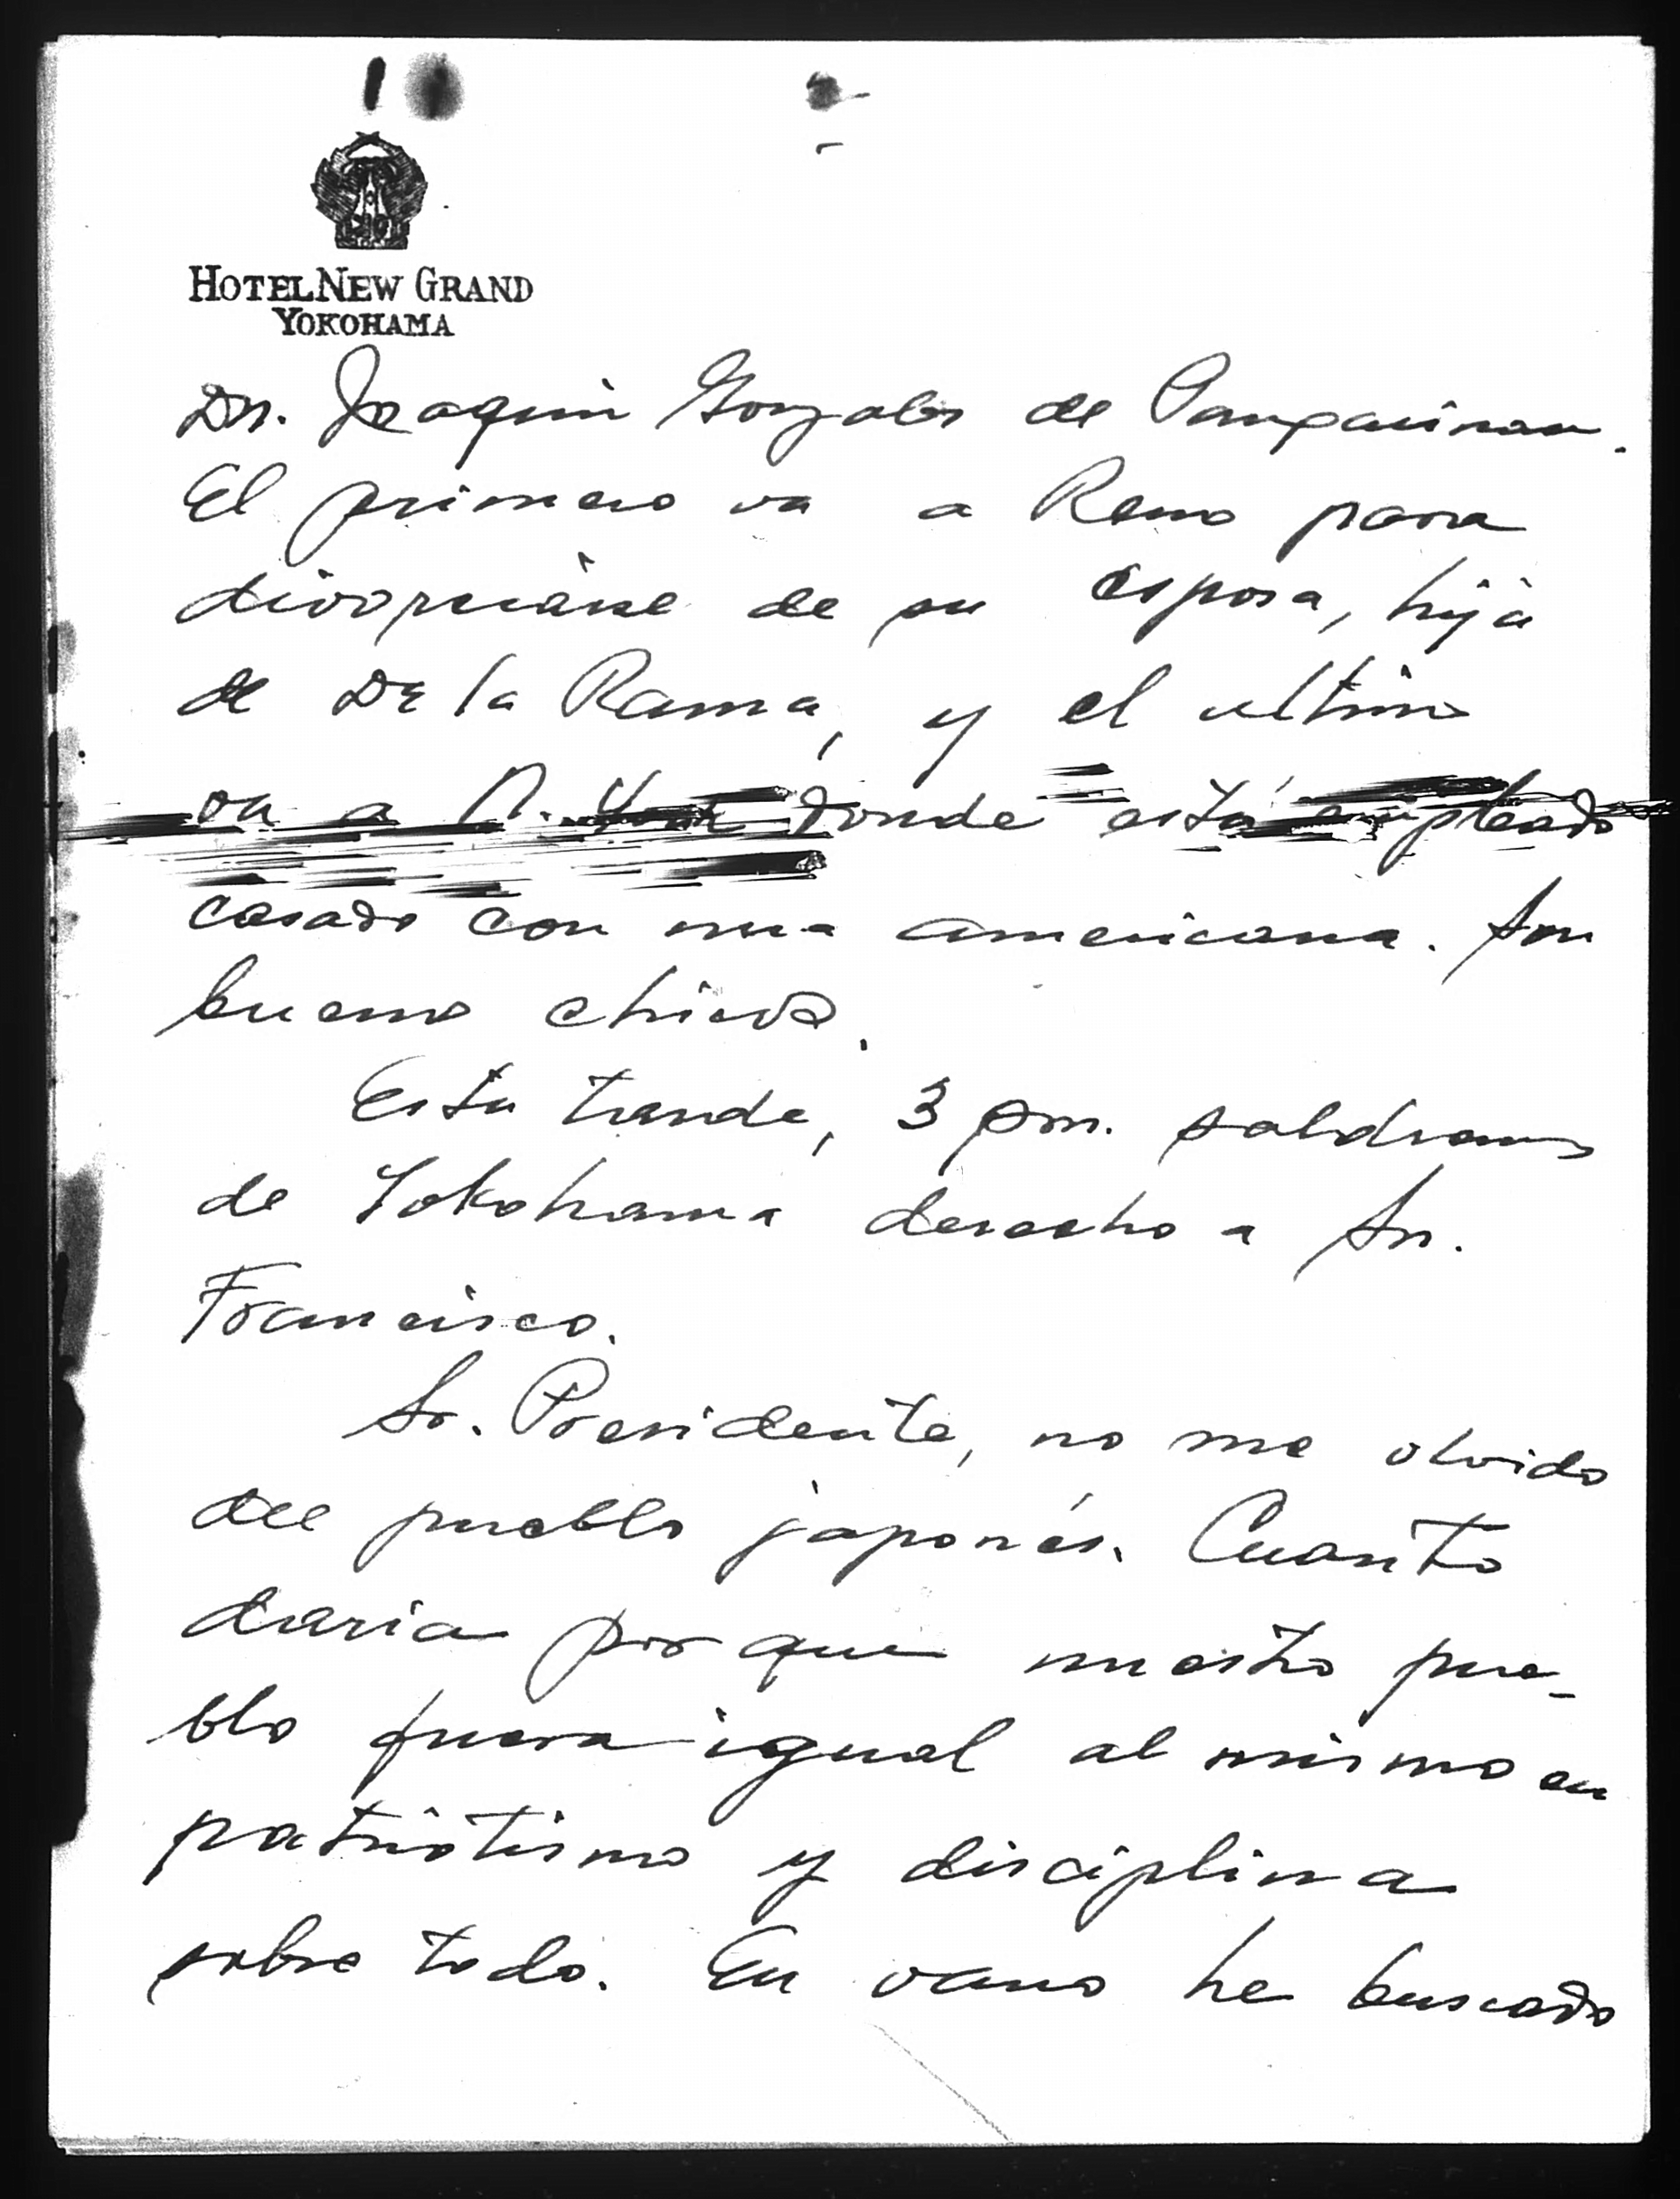 HOTEL NEW GRAND
YOKOHAMA
Dr. Joaquin Gonzales de Pampanga.
El primero va a Reno para
divorciarse de su esposa, hija
de De la Rama, y el ultimo
va a N. York donde está empleado
casado con una americana. Son
buenos chicos.
Esta tarde, 3 pm. saldremos
de Yokohama derecho a Sn.
Francisco.
Sr. Presidente, no me olvido
del pueblo japonés. Cuanto
daria por que nuestro pue-
blo fuera igual al mismo en
patriotismo y disciplina
sobre todo. En vano he buscado